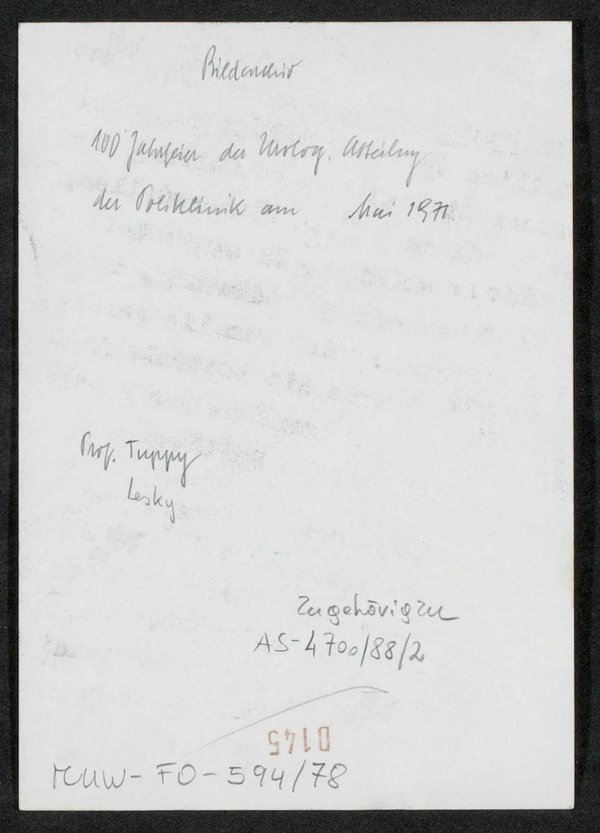 Bildarchiv
100 Jahrfeier der Urolog. Abteilung
der Poliklinik am Mai 1971
Prof. Tuppy
Lesky
zugehörig zu
AS-4700/88/2
D145
MUW-FO-594/78